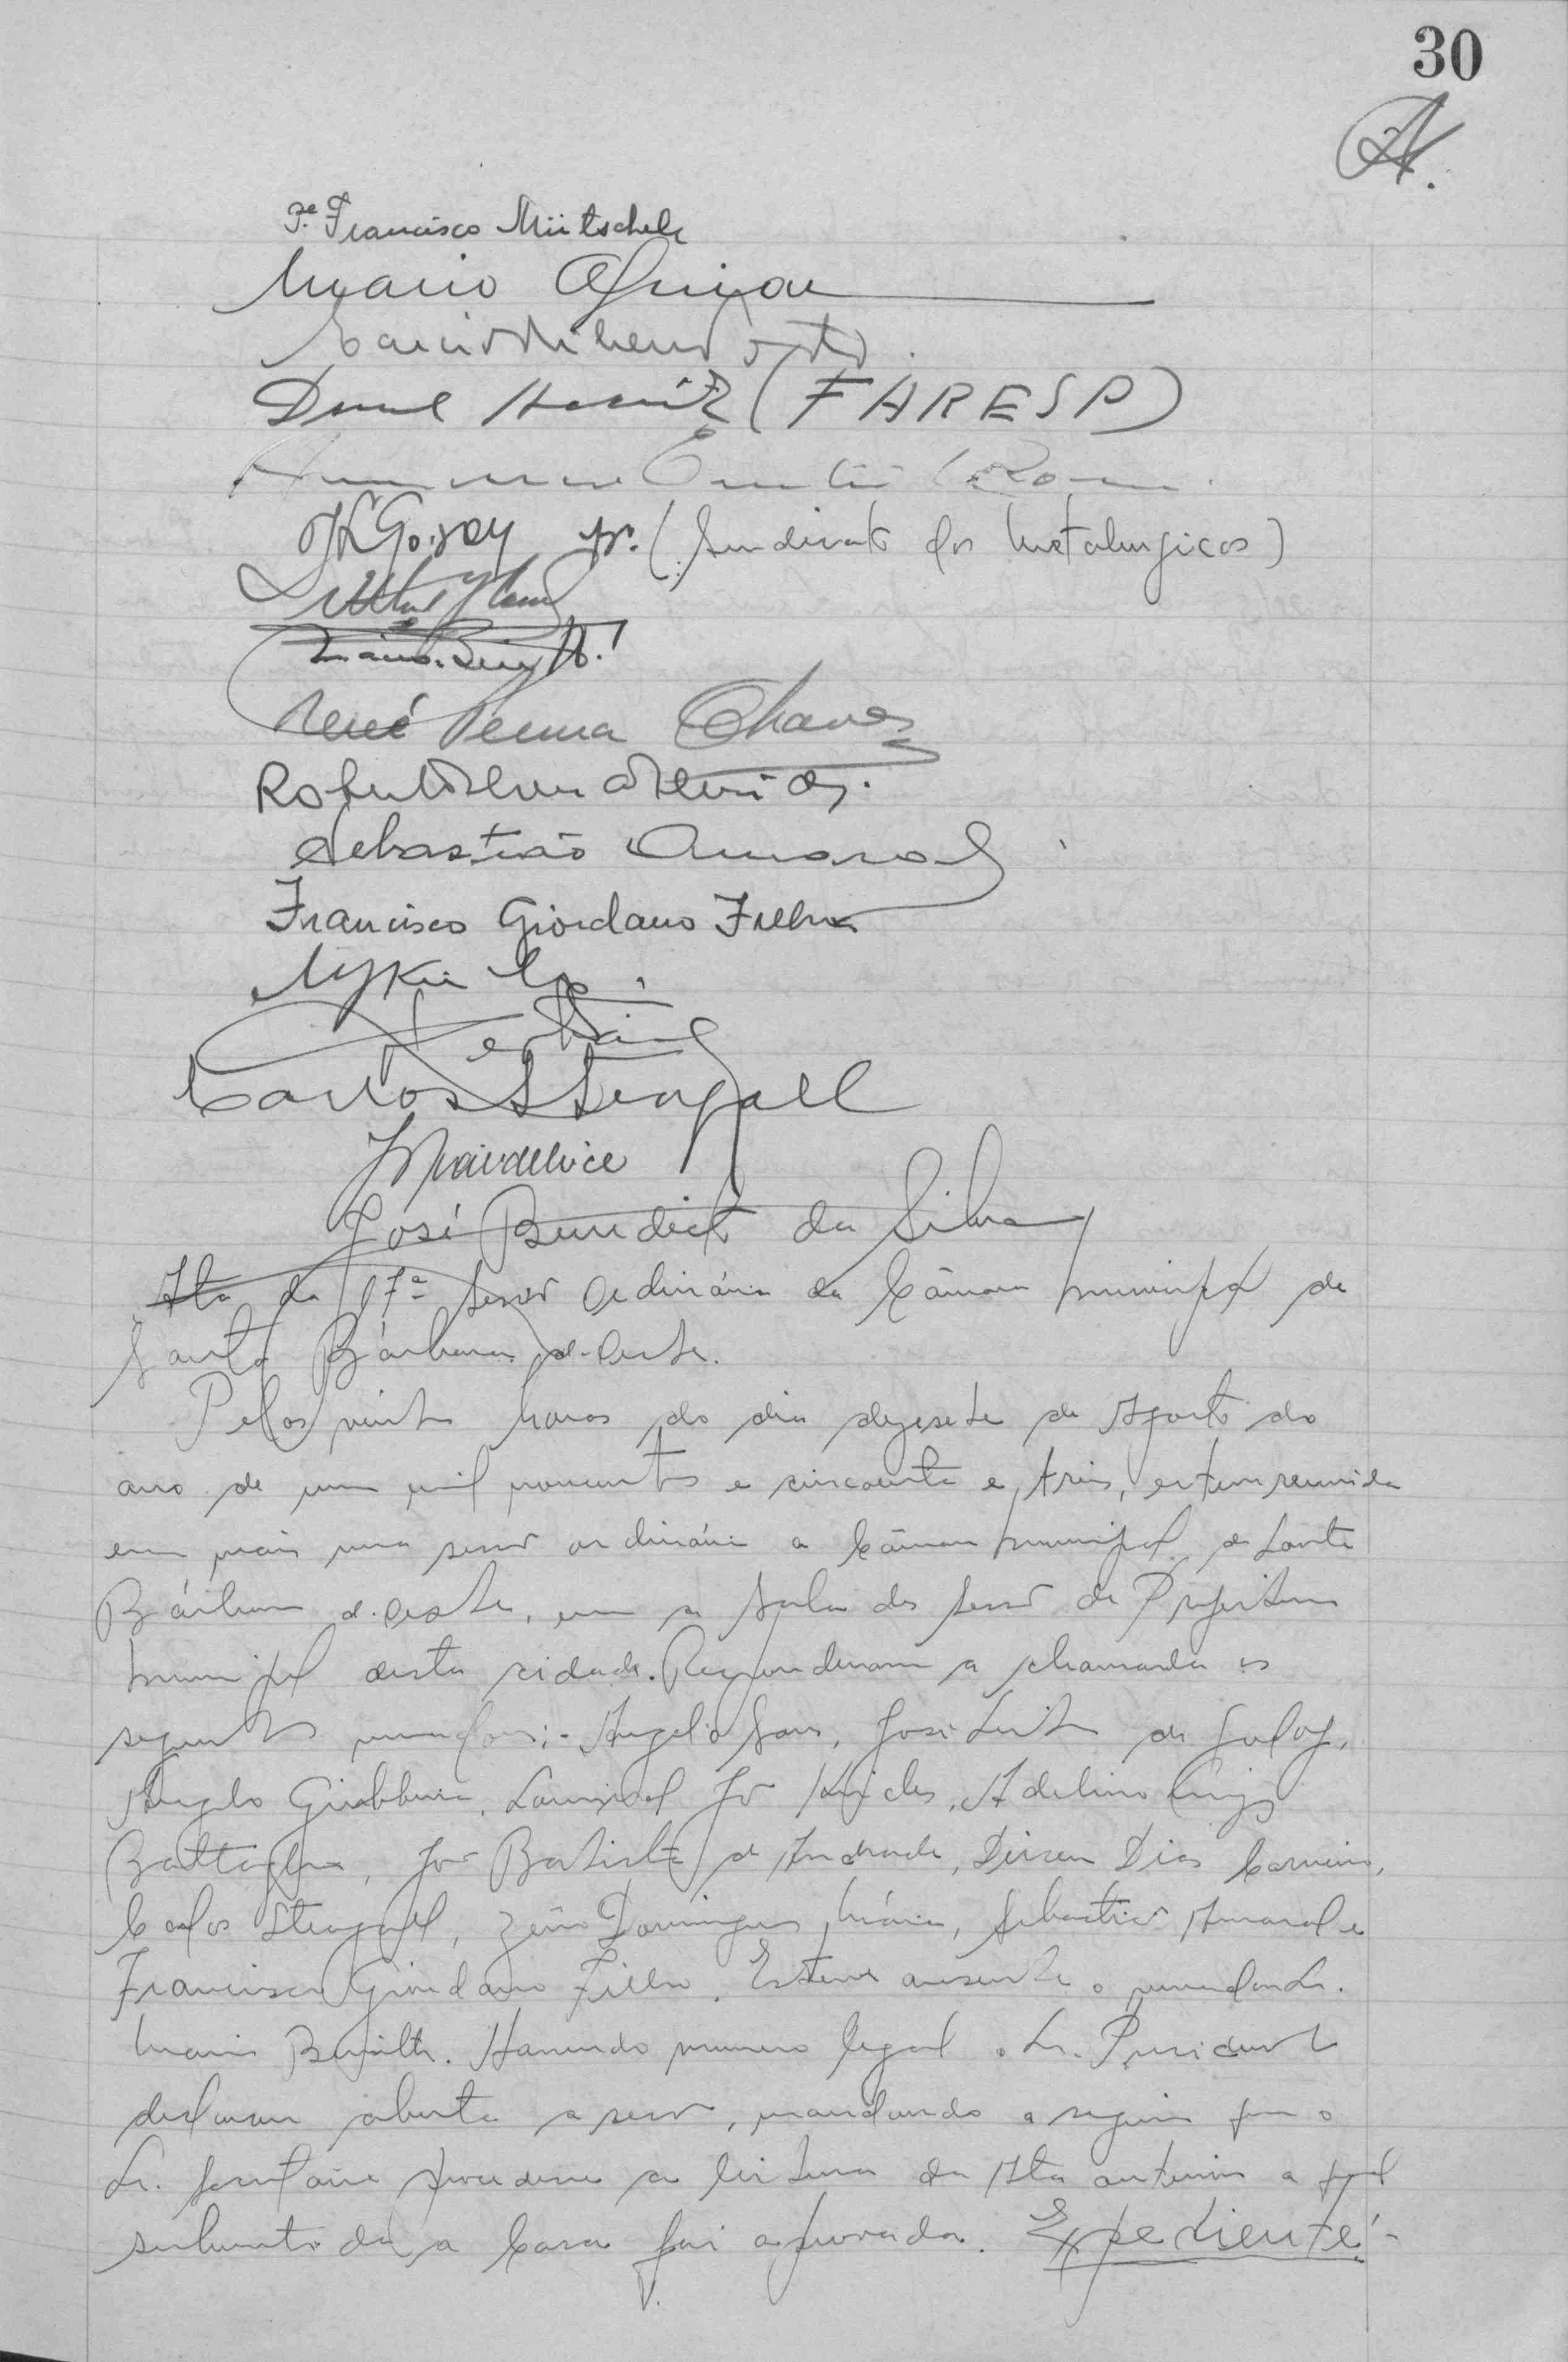 30
A.
Pe. Francisco Mütschele
Mario
(FARESP)
JLGodoy pr. (Sindicato dos Metalurgicos)
René Penna Chaves
Sebastião Amaral
Francisco Giordano Filho
Carlos Steagall
José Benedict da Silva
Ata da 17ª sessão Ordinária da Câmara Municipal de
Santa Bárbara d-Oeste.
Pelas vinte horas do dia dezesete de Agosto do
ano de um mil novecentos e cincoenta e três, esteve reunida
em mais uma sessão ordinária a Câmara Municipal de Santa
Bárbara d-Oeste, em a sala das sessões da Prefeitura
Municipal desta cidade. Responderam a chamada os
seguintes vereadores:- Angelo Sans, José Leite de Godoy,
Angelo Giubbina, Lourival Adelino Luiz
Battaglia, José Batista de Andrade, Dirceu Dias Carneiro,
Carlos Steagall, Zeno Domingues Maia, Sebastião Amaral e
Francisco Giordano Filho. Esteve ausente o vereador Sr.
Mario Havendo numero legal o Sr. Presidente
declarou aberta a sessão, mandando a seguir que o
Sr. Secretário procedesse a leitura da Ata anterior a qual
submetida a Casa foi aprovada. Expediente:-